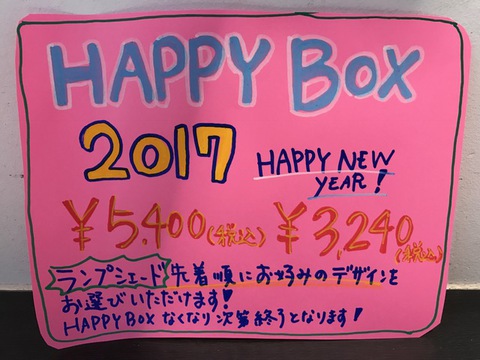 HAPPY BOX
2017 HAPPY NEW YEAR!
¥5,400(税込) ¥3,240(税込)
ランプシェード 先着順にお好みのデザインを
お選びいただけます!
HAPPY BOXなくなり次第終うとなります!